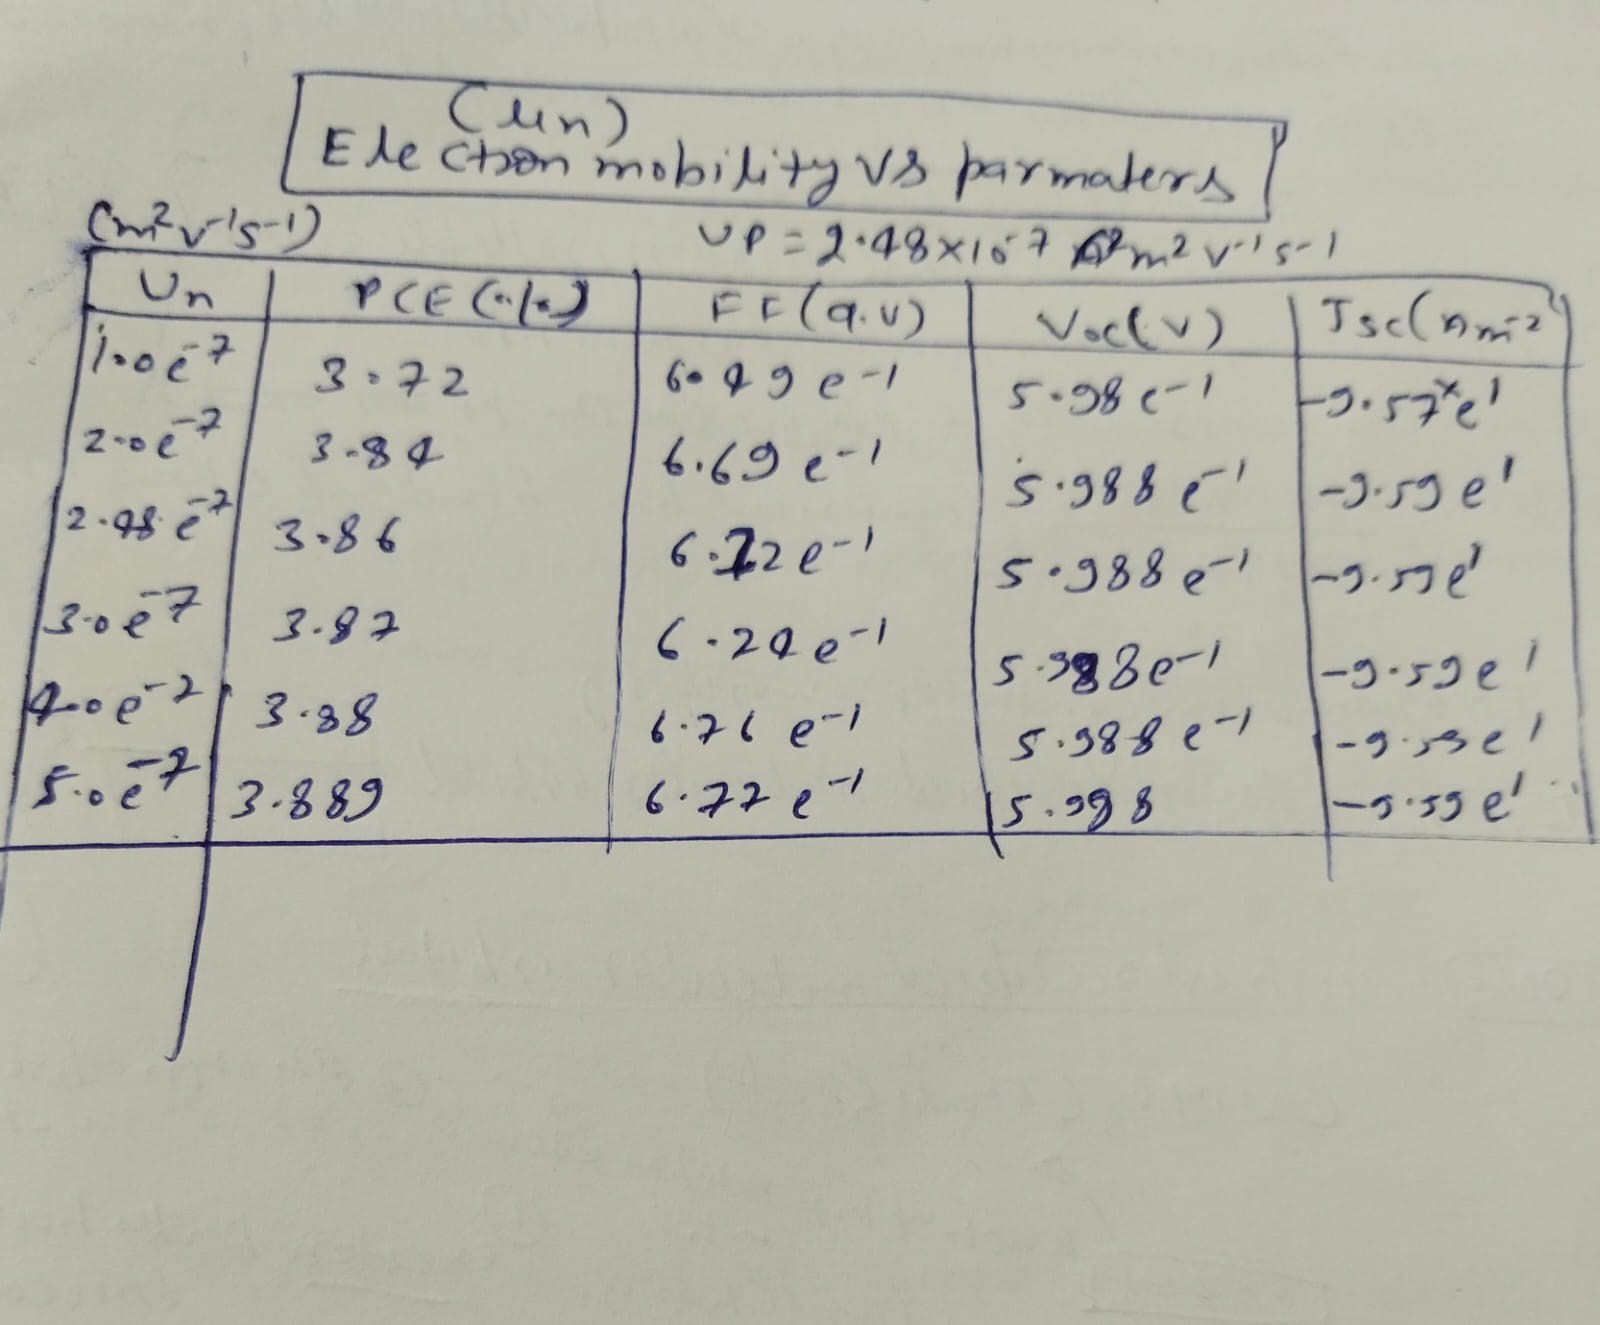 (μn)
Electron mobility vs parmaters
(m² v⁻¹s⁻¹)
UP = 2.48×10⁻⁷ m² v⁻¹ s⁻¹
Un PCE (%) FF (a.u) Voc (v) Jsc (Am⁻²
1.0e⁻⁷ 3.72 6.49 e⁻¹ 5.98 e⁻¹ -9.57×e¹
2.0e⁻⁷ 3.84 6.69 e⁻¹ 5.988 e⁻¹ -9.59 e¹
2.48 e⁻⁷ 3.86 6.72 e⁻¹ 5.988 e⁻¹ -9.59 e¹
3.0 e⁻⁷ 3.87 6.74 e⁻¹ 5.988 e⁻¹ -9.59 e¹
4.0 e⁻⁷ 3.88 6.76 e⁻¹ 5.988 e⁻¹ -9.59 e¹
5.0 e⁻⁷ 3.889 6.77 e⁻¹ 5.998 -9.59 e¹